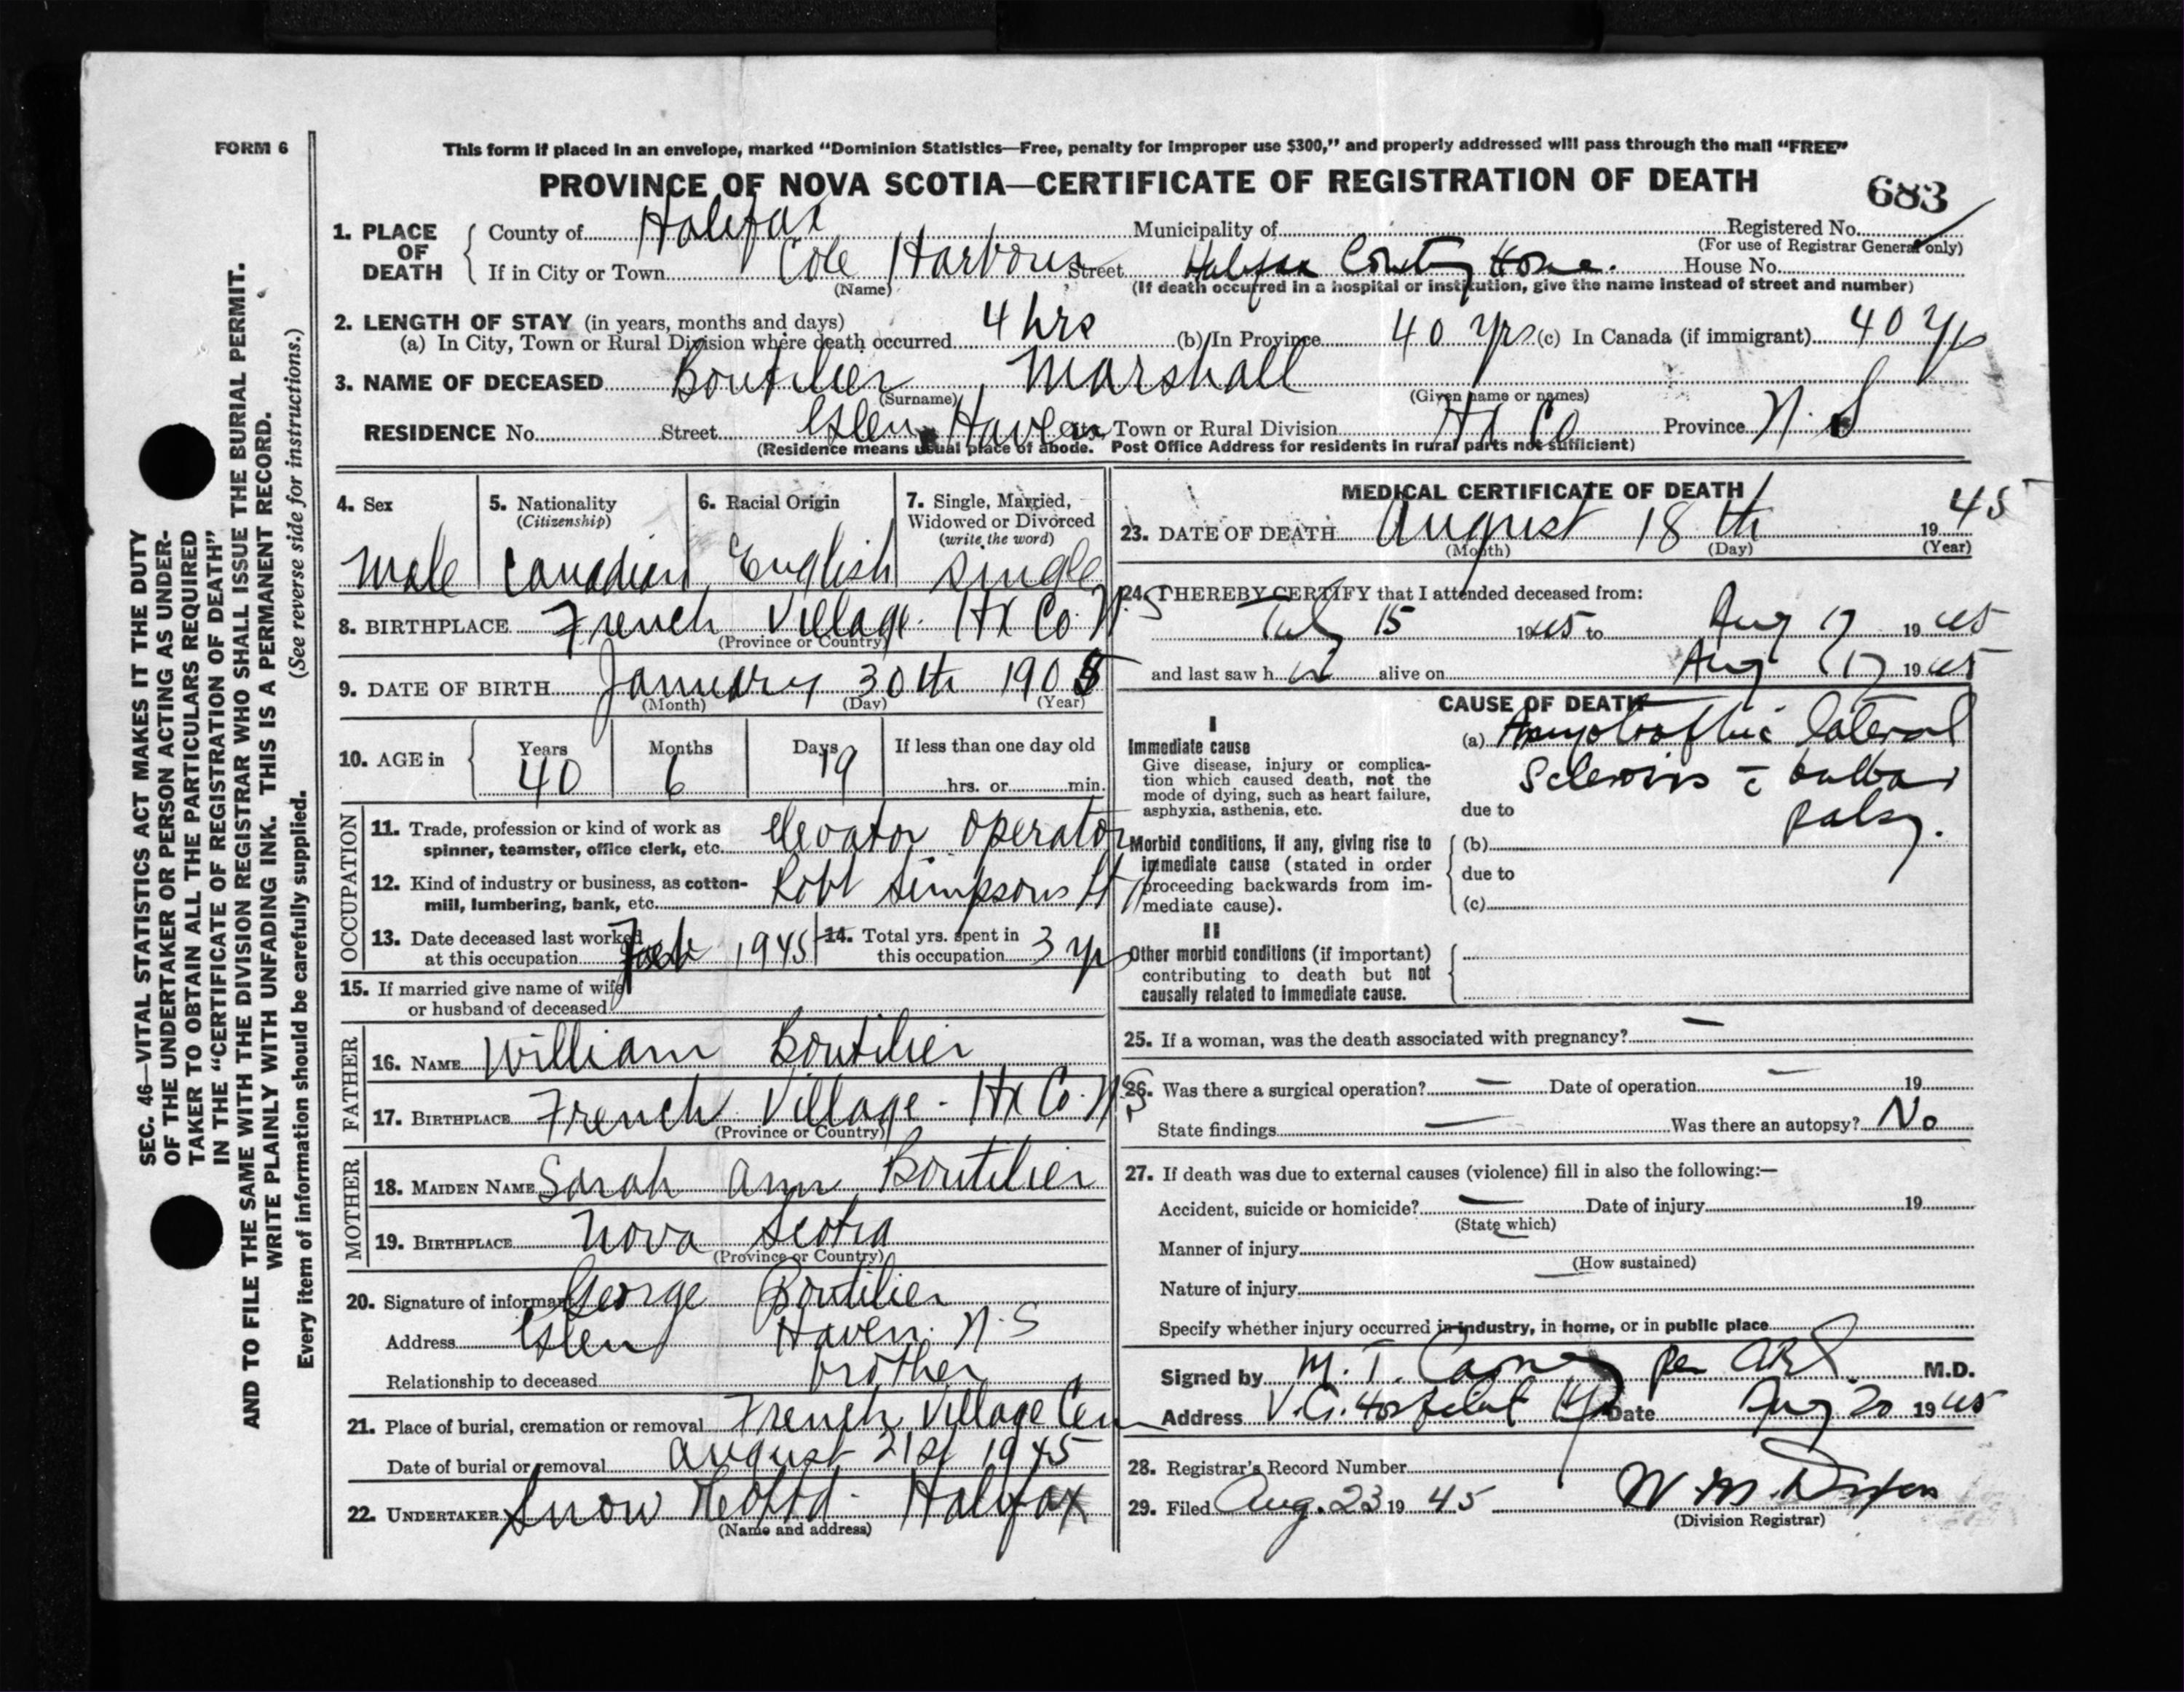 FORM 6
This form if placed in an envelope, marked "Dominion Statistics—Free, penalty for improper use $300," and properly addressed will pass through the mail "FREE"
PROVINCE OF NOVA SCOTIA—CERTIFICATE OF REGISTRATION OF DEATH
683
1. PLACE OF DEATH
County of Halifax Municipality of Registered No.
(For use of Registrar General only)
If in City or Town Cole Harbour Street Halifax County Home. House No.
(Name) (If death occurred in a hospital or institution, give the name instead of street and number)
2. LENGTH OF STAY (in years, months and days)
(a) In City, Town or Rural Division where death occurred 4 hrs (b) In Province 40 yrs (c) In Canada (if immigrant) 40 yrs
3. NAME OF DECEASED Boutilier, Marshall
(Surname) (Given name or names)
RESIDENCE No. Street Glen Haven City, Town or Rural Division Hx Co Province N. S
(Residence means usual place of abode. Post Office Address for residents in rural parts not sufficient)
4. Sex
Male
5. Nationality
(Citizenship)
Canadian
6. Racial Origin
English
7. Single, Married,
Widowed or Divorced
(write the word)
Single
8. BIRTHPLACE French Village. Hx Co. N. S
(Province or Country)
9. DATE OF BIRTH January 30th 1905
(Month) (Day) (Year)
10. AGE in Years 40 Months 6 Days 19 If less than one day old
hrs. or min.
OCCUPATION
11. Trade, profession or kind of work as
spinner, teamster, office clerk, etc. elevator operator
12. Kind of industry or business, as cotton-
mill, lumbering, bank, etc. Robt Simpsons
13. Date deceased last worked
at this occupation Feb 1945
14. Total yrs. spent in
this occupation 3 yrs
15. If married give name of wife
or husband of deceased
FATHER
16. NAME William Boutilier
17. BIRTHPLACE French Village - Hx Co. N. S
(Province or Country)
MOTHER
18. MAIDEN NAME Sarah Ann Boutilier
19. BIRTHPLACE Nova Scotia
(Province or Country)
20. Signature of informant George Boutilier
Address Glen Haven. N. S
Relationship to deceased brother
21. Place of burial, cremation or removal French Village Cem
Date of burial or removal August 21st 1945
22. UNDERTAKER Snow & Co Ltd - Halifax
(Name and address)
MEDICAL CERTIFICATE OF DEATH
23. DATE OF DEATH August 18th 1945
(Month) (Day) (Year)
24. I HEREBY CERTIFY that I attended deceased from:
15 1945 to Aug 17 1945
and last saw h alive on Aug 17 1945
CAUSE OF DEATH
I
Immediate cause
Give disease, injury or complica-
tion which caused death, not the
mode of dying, such as heart failure,
asphyxia, asthenia, etc.
(a) Amyotrophic lateral
Sclerosis c̄ bulbar
due to palsy.
Morbid conditions, if any, giving rise to
immediate cause (stated in order
proceeding backwards from im-
mediate cause).
(b)
due to
(c)
II
Other morbid conditions (if important)
contributing to death but not
causally related to immediate cause.
25. If a woman, was the death associated with pregnancy? —
26. Was there a surgical operation? — Date of operation — 19
State findings — Was there an autopsy? No
27. If death was due to external causes (violence) fill in also the following:—
Accident, suicide or homicide? — Date of injury 19
(State which)
Manner of injury
(How sustained)
Nature of injury
Specify whether injury occurred in industry, in home, or in public place
Signed by M. T. per M.D.
Address V. G. Hospital Hfx Date Aug 20 1945
28. Registrar's Record Number
29. Filed Aug. 23 1945 W. M. Dixon
(Division Registrar)
SEC. 46—VITAL STATISTICS ACT MAKES IT THE DUTY
OF THE UNDERTAKER OR PERSON ACTING AS UNDER-
TAKER TO OBTAIN ALL THE PARTICULARS REQUIRED
IN THE "CERTIFICATE OF REGISTRATION OF DEATH"
AND TO FILE THE SAME WITH THE DIVISION REGISTRAR WHO SHALL ISSUE THE BURIAL PERMIT.
WRITE PLAINLY WITH UNFADING INK. THIS IS A PERMANENT RECORD.
Every item of information should be carefully supplied. (See reverse side for instructions.)